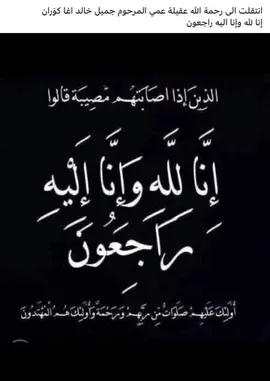 انتقلت الى رحمة الله عقيلة عمي المرحوم جميل خالد اغا كوران
إنا لله وإنا اليه راجعون
الذين إذا اصابتهم مصيبة قالوا
إِنَّا لِلَّهِ وَإِنَّا إِلَيْهِ
رَاجِعُونَ
أُولَئِكَ عَلَيْهِمْ صَلَوَاتٌ مِّن رَّبِّهِمْ وَرَحْمَةٌ وَأُولَئِكَ هُمُ الْمُهْتَدُونَ